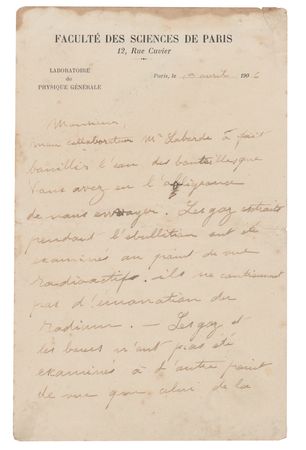 FACULTÉ DES SCIENCES DE PARIS
12, Rue Cuvier
LABORATOIRE
de
PHYSIQUE GÉNÉRALE
Paris, le avril 190
Monsieur,
mon collaborateur Mr Laborde a fait
bouillir l'eau des bouteilles que
vous avez eu l'obligeance
de nous envoyer. Les gaz extraits
pendant l'ébullition ont été
examinés au point de vue
radioactifs. ils ne contiennent
pas d'émanation du
radium. — Les gaz et
les boues n'ont pas été
examinés à d'autre point
de vue que celui de la